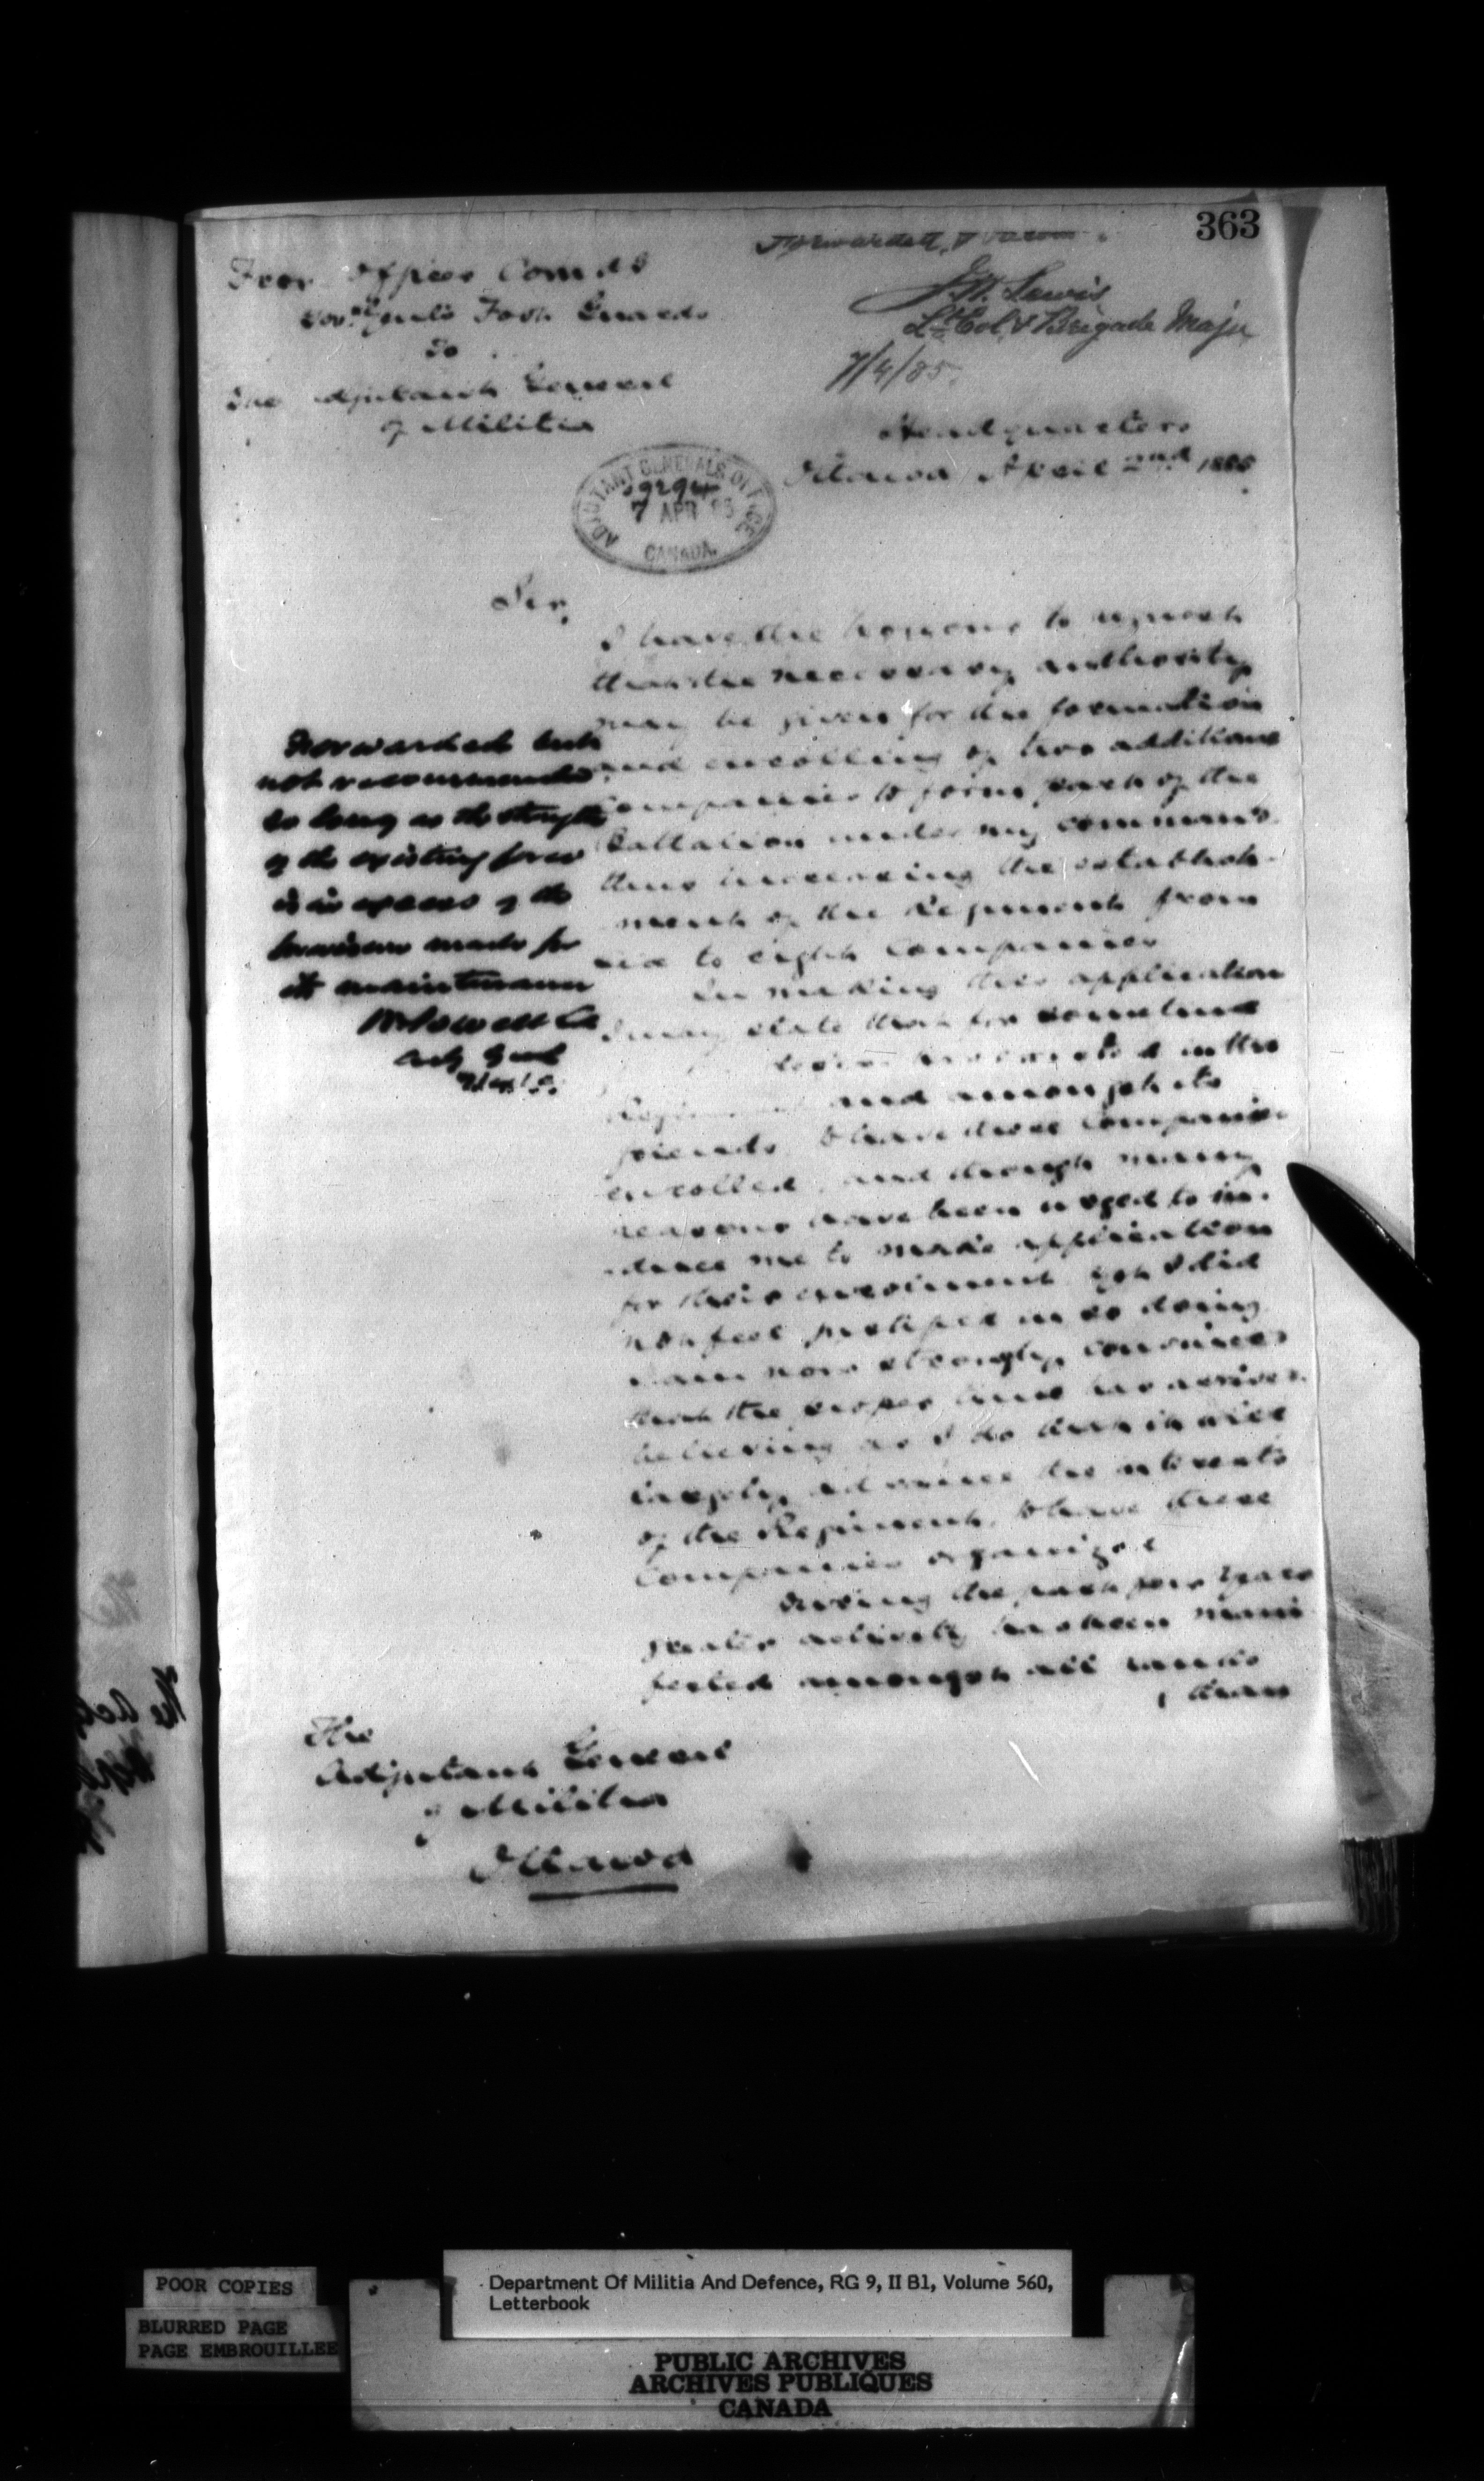 363
Forwarded
Lewis
Lt Col & Brigade Major
7/4/85
From Officer Comdg
Foot Guards
To
The Adjutant General
of Militia
Headquarters
Ottawa April 2nd 1885
ADJUTANT GENERALS OFFICE
7 APR 85
CANADA
Sir,
I have the honour to request
that the necessary authority
may be given for the formation
and enrolling of two additional
Companies to form part of the
Battalion under my command
thus increasing the establish-
ment of the Regiment from
six to eight Companies
In making this application
I may state that for sometime
has existed in the
Regiment and amongst its
friends to have these Companies
enrolled, and though many
reasons have been urged to in-
duce me to make application
for their enrolment yet I did
not feel justified in so doing
I am now strongly convinced
that the proper time has arrived
believing as I do that it will
largely advance the interests
of the Regiment to have these
Companies organized
During the past few years
greater activity has been mani
fested amongst all ranks
than
Forwarded but
not recommended
so long as the strength
of the existing force
is in excess of the
provision made for
its maintenance
Powell Col
Adj Genl
The
Adjutant General
of Militia
Ottawa
POOR COPIES
BLURRED PAGE
PAGE EMBROUILLEE
Department Of Militia And Defence, RG 9, II B1, Volume 560,
Letterbook
PUBLIC ARCHIVES
ARCHIVES PUBLIQUES
CANADA